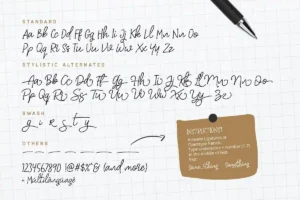 STANDARD
Aa Bb Cc Dd Ff Gg Hh Ii Jj Kk Ll Mm Nn Oo
Pp Qq Rr Ss Tt Uu Vv Ww Xx Yy Zz
STYLISTIC ALTERNATES
Aa Bb Cc Dd Ff Gg Hh Ii Jj Kk Ll Mm Nn Oo
Pp Rr Ss Tt Uu Vv Ww Xx Yy Zz
SWASH
g r s t y
OTHERS
1234567890 !@#$%& (and more)
+ Multilanguage
INSTRUCTIONS